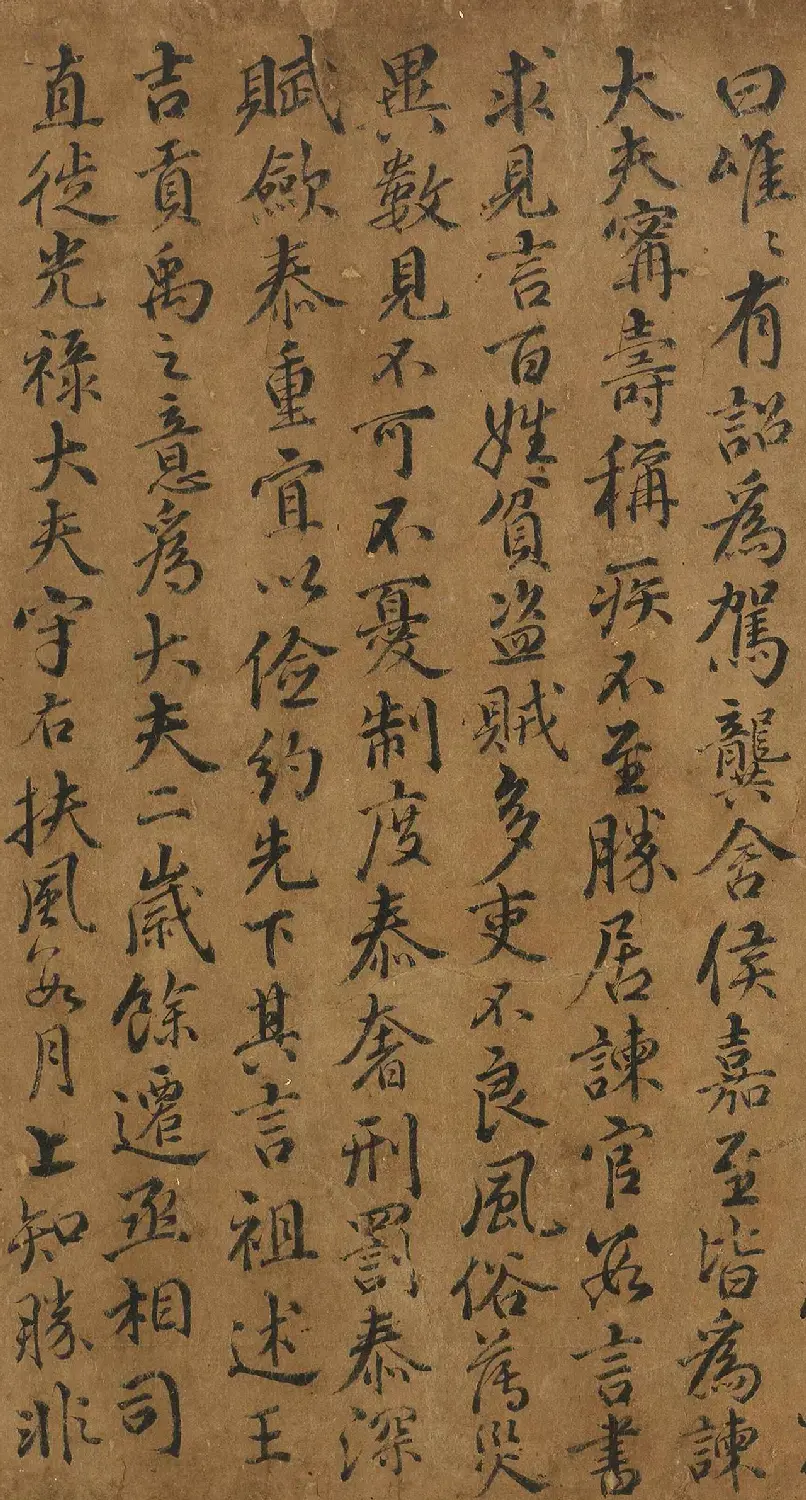 曰唯〻有詔爲駕龔舍侯嘉至皆爲諫
大夫甯壽稱疾不至勝居諫官數言書
求見言百姓貧盜賊多吏不良風俗薄災
異數見不可不憂制度泰奢刑罰泰深
賦斂泰重宜以儉約先下其言祖述王
吉貢禹之意爲大夫二歲餘遷丞相司
直徙光祿大夫守右扶風數月上知勝非